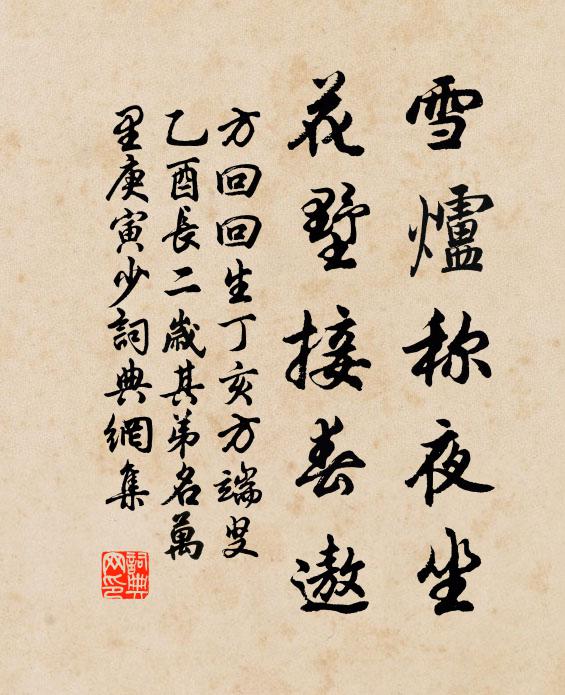 雪爐称夜坐
花墅接春遨
方回回生丁亥方端叟
乙酉長二歲其弟名萬
里庚寅少詞典網集
詞典网印